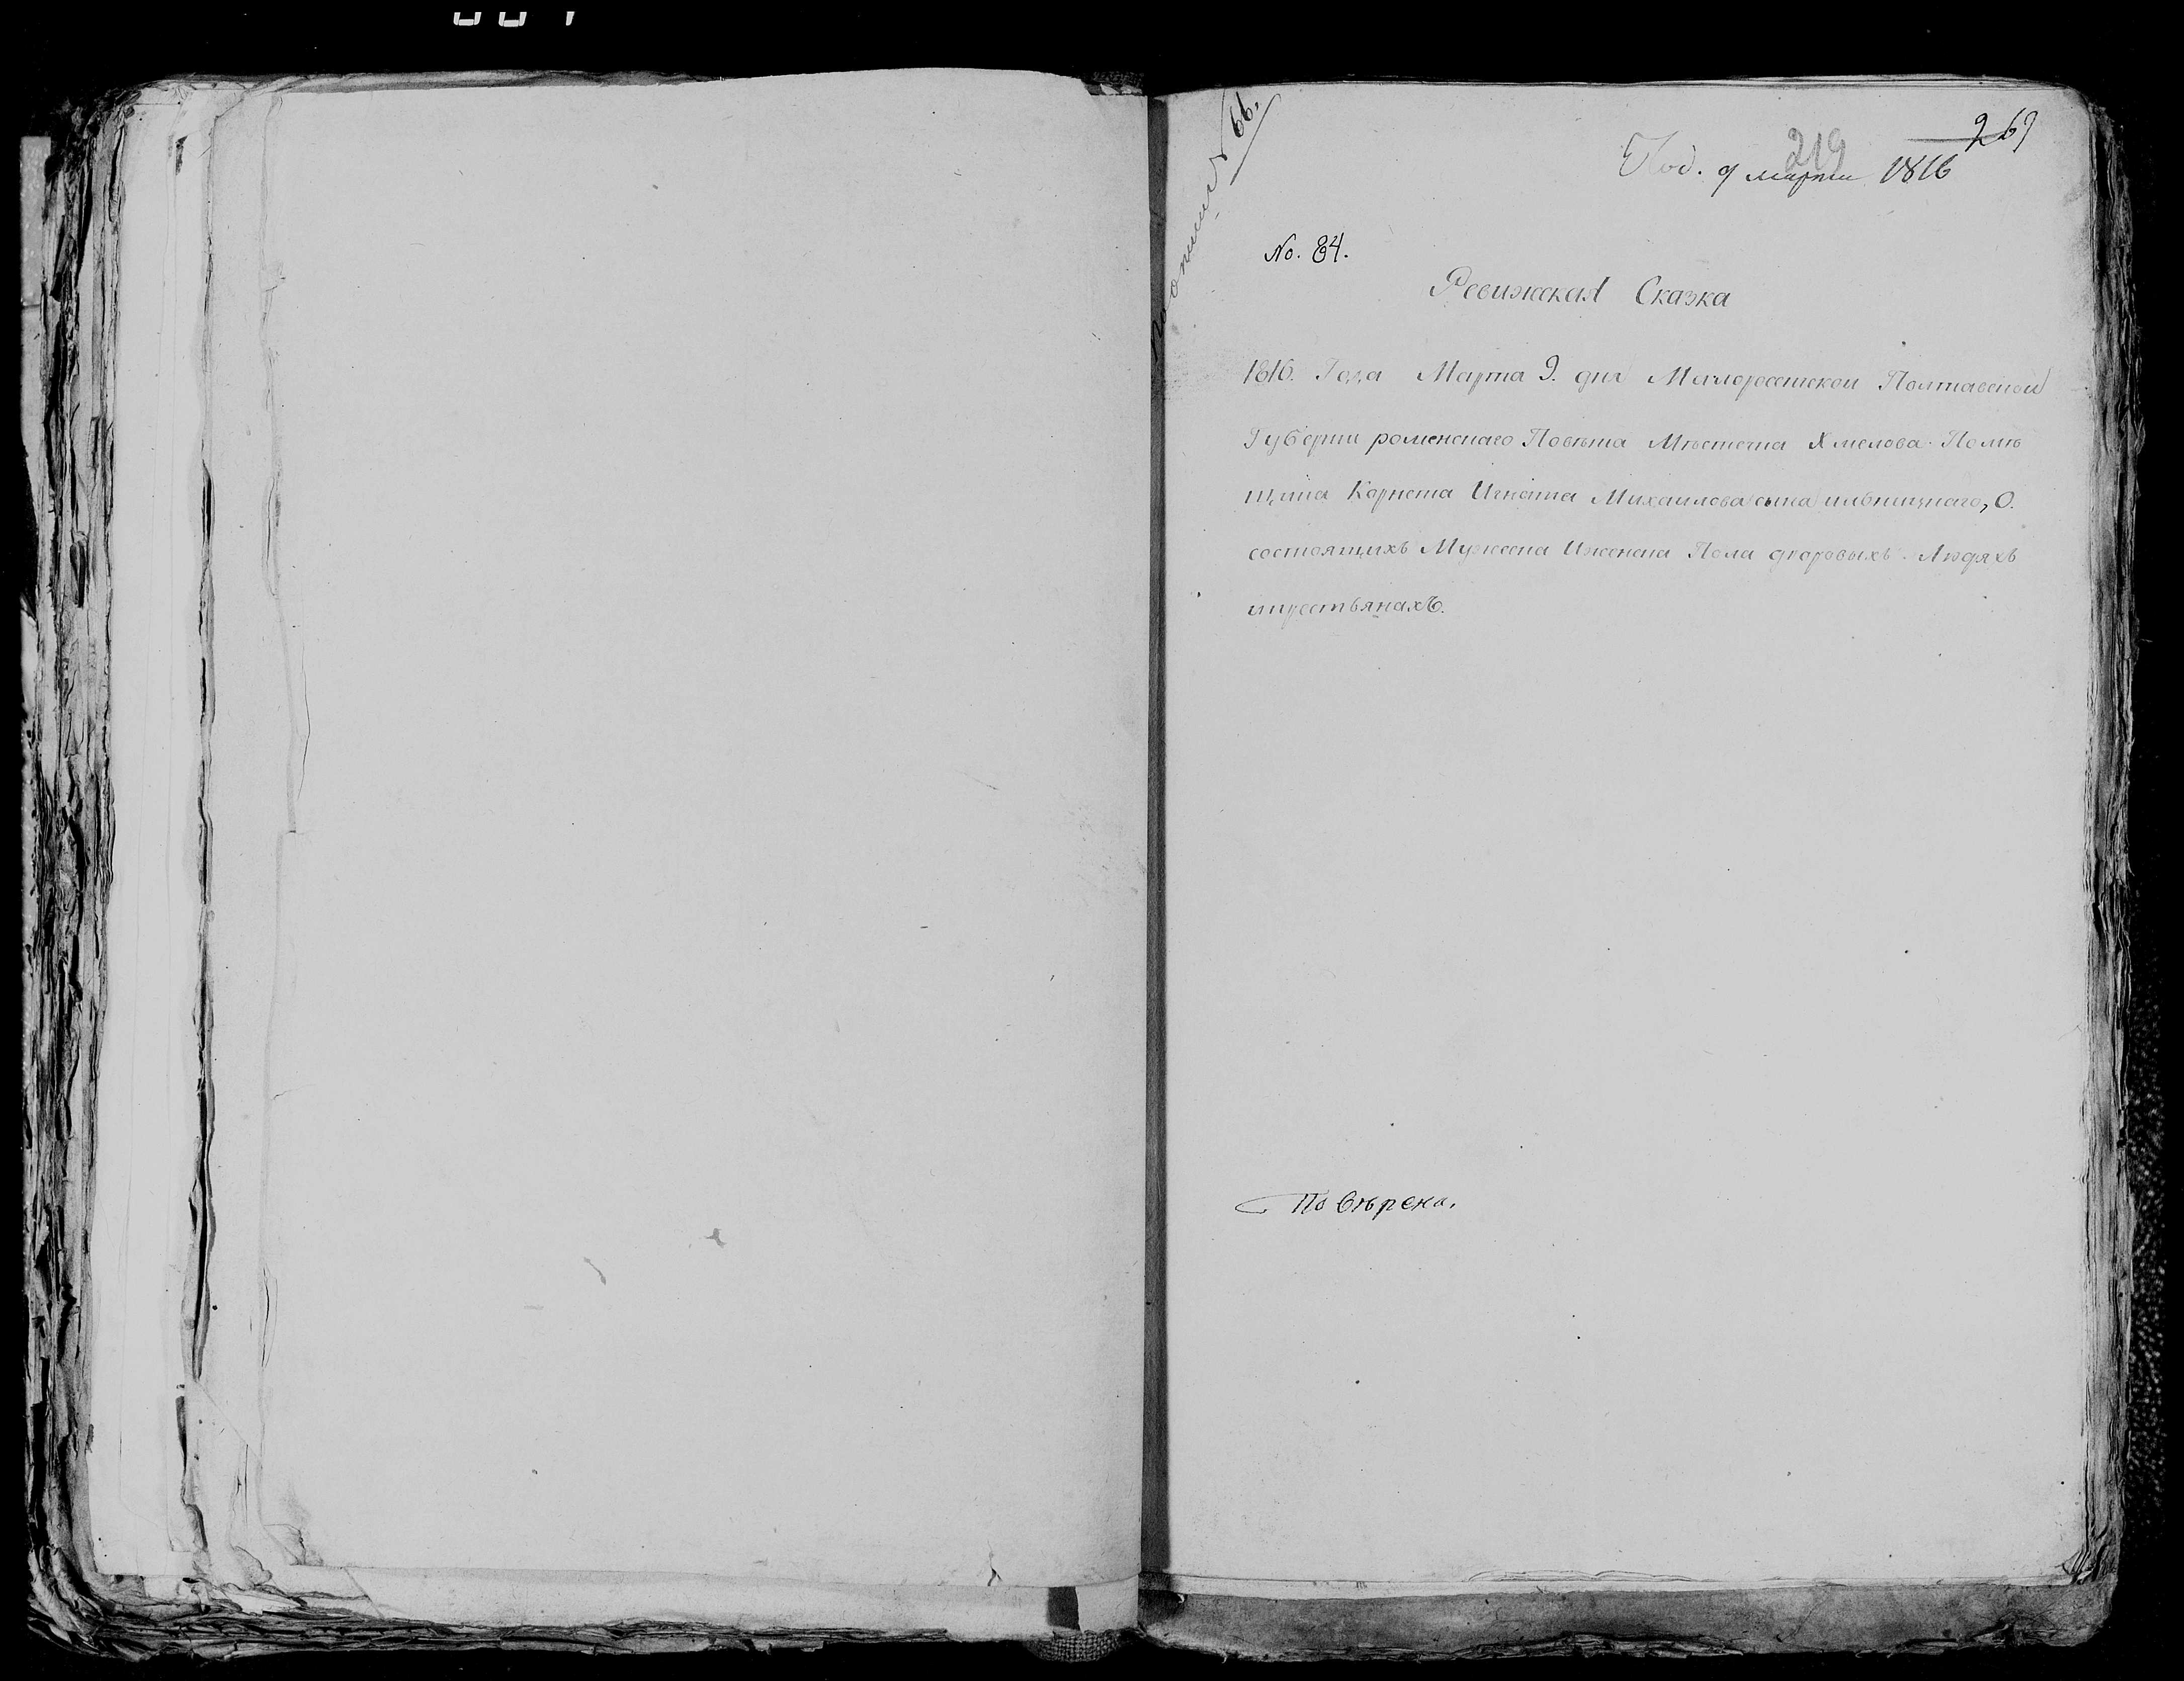 по описи № 66.
269
219
Под. 9 марта 1816
No. 84.
Ревижская Сказка
1816. Года Марта 9. дня Малоросстскои Полтавской
Губерни роменского Повѣта Мѣстечка Хмелова Помѣ
щика Корнета Игната Михаилова сына , О.
состоящихъ Мужеска Иженска Пола дворовыхъ Людяхъ
икрестьянахъ.
Повѣрена.